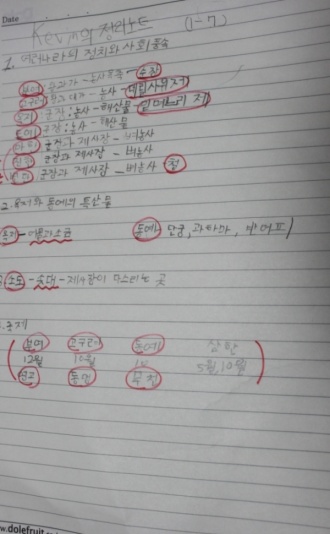 Date
Kevin의 정리노트 (1-7)
1. 여러나라의 정치와 사회풍속
부여 순장
고구려 - 농사 - 데릴사위제
옥저 군장: 농사 - 해산물 민며느리제
동예 군장: 농사 - 해산물
마한 군장과 제사장 - 벼농사
진한 군장과 제사장 - 벼농사
변한 군장과 제사장 - 벼농사 철
2. 옥저와 동예의 특산물
옥저 - 어물과 소금 동예 단궁, 과하마, 반어피
소도 - 솟대 - 제사장이 다스리는 곳
.축제
부여 고구려 동예 삼한
12월 10월 10 5월, 10월
영고 동맹 무천
w.dolefruit